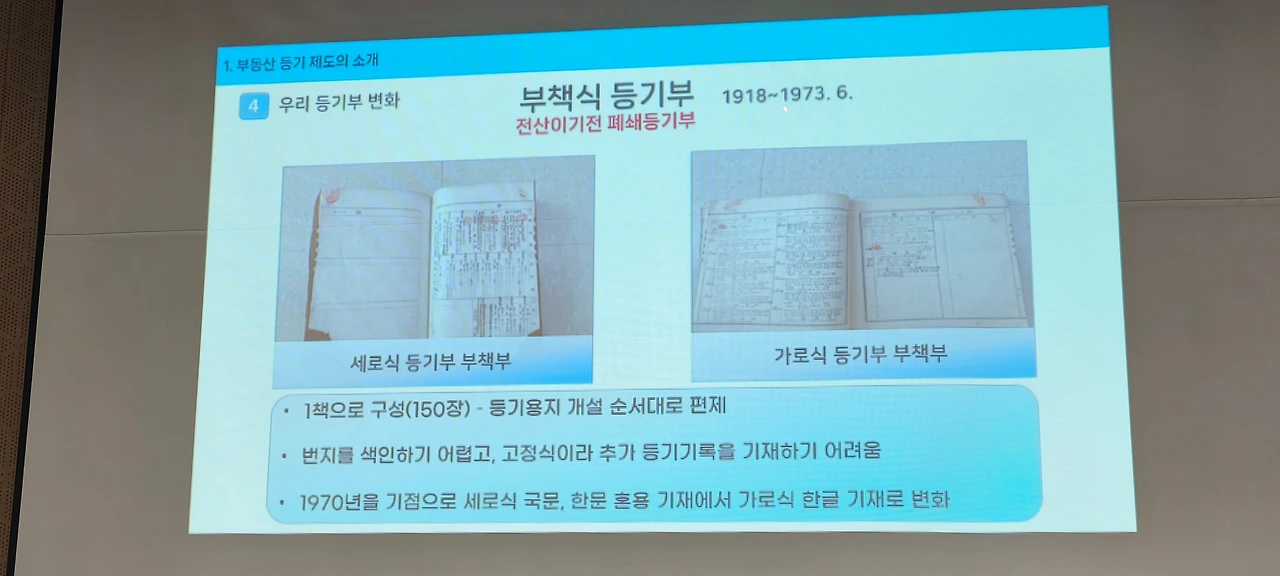 1. 부동산 등기 제도의 소개
4 우리 등기부 변화
부책식 등기부 1918~1973. 6.
전산이기전 폐쇄등기부
세로식 등기부 부책부
가로식 등기부 부책부
• 1책으로 구성(150장) - 등기용지 개설 순서대로 편제
• 번지를 색인하기 어렵고, 고정식이라 추가 등기기록을 기재하기 어려움
• 1970년을 기점으로 세로식 국문, 한문 혼용 기재에서 가로식 한글 기재로 변화